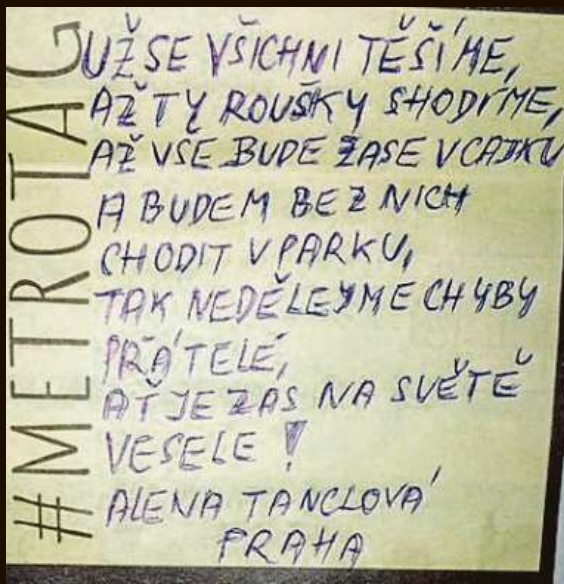 #METROTAG
UŽ SE VŠICHNI TĚŠÍME,
AŽ TY ROUŠKY SHODÍME,
AŽ VŠE BUDE ZASE V CAJKU
A BUDEM BEZ NICH
CHODIT V PARKU,
TAK NEDĚLEJME CHYBY
PŘÁTELÉ,
AŤ JE ZAS NA SVĚTĚ
VESELE!
ALENA TANCLOVÁ
PRAHA